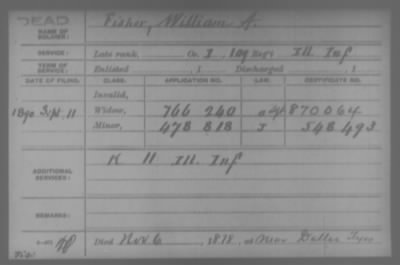 DEAD
NAME OF SOLDIER: Fisher, William A.
SERVICE: Late rank, Co. I, 109 Reg't Ill. Inf
TERM OF SERVICE: Enlisted , 1 Discharged , 1
DATE OF FILING. CLASS. APPLICATION NO. LAW. CERTIFICATE NO.
Invalid,
1890 Sept 11 Widow, 766 240 870064
Minor, 478 818 548 493
ADDITIONAL SERVICES: K 11 Ill. Inf
REMARKS:
Died Nov. 6, 1878, at near Dallas